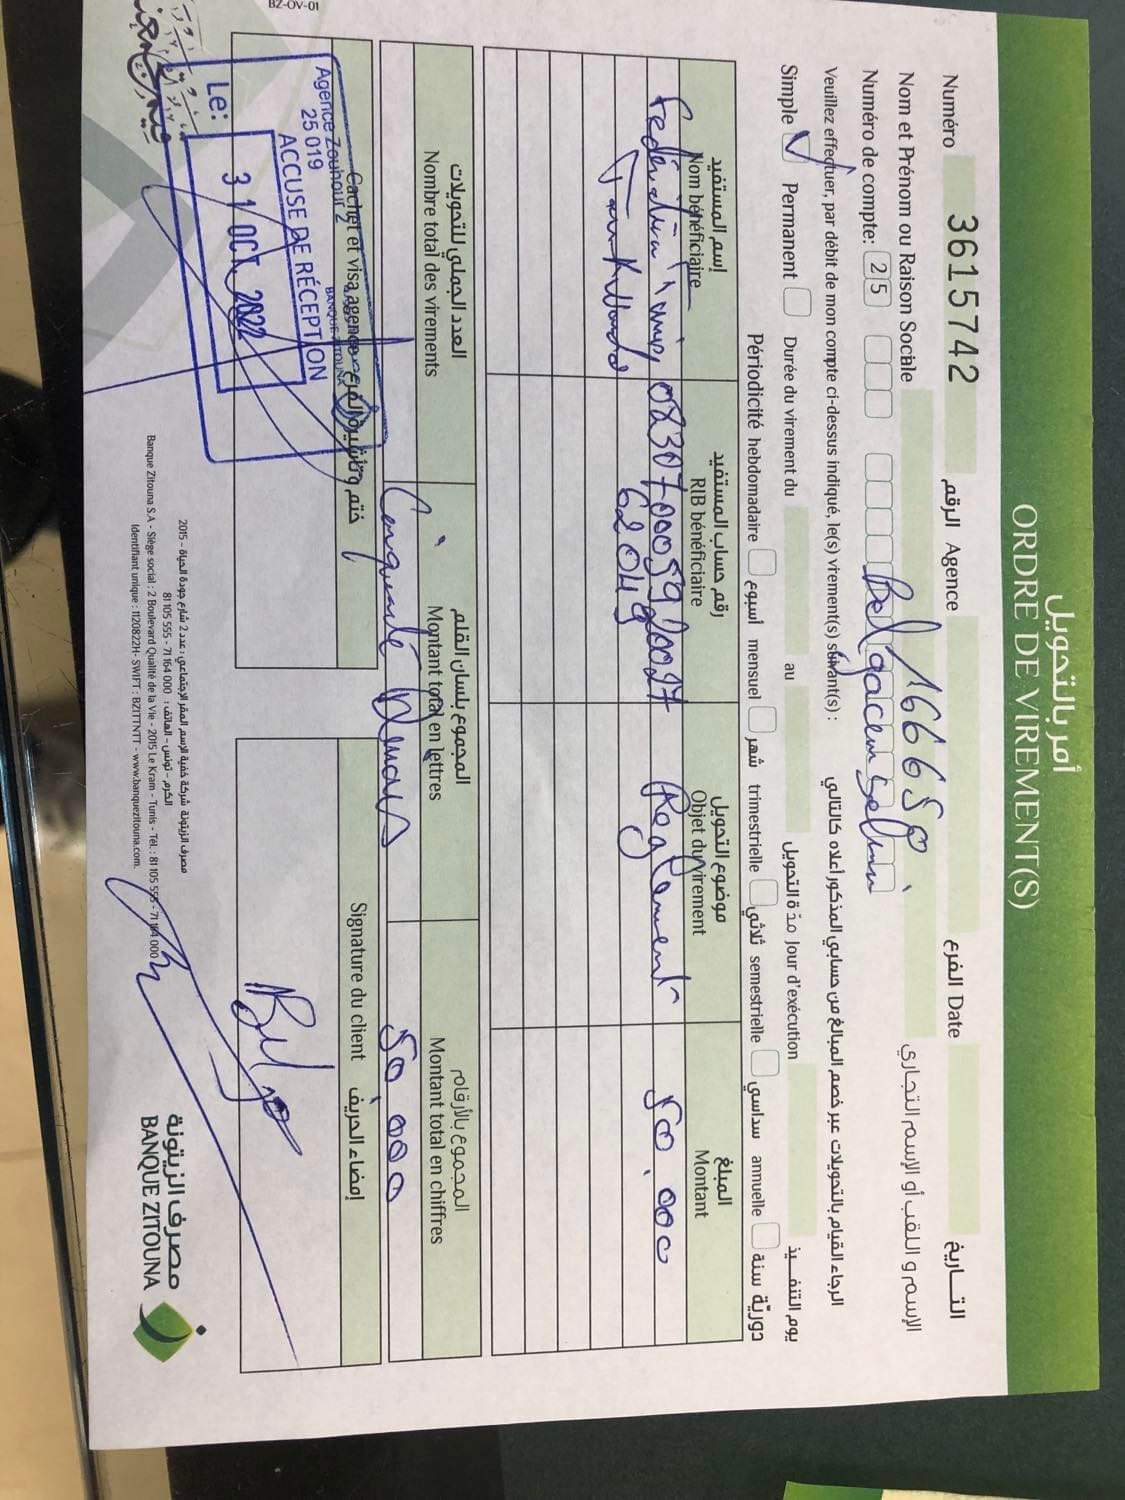 أمر بالتحويل
ORDRE DE VIREMENT(S)
Numéro 3615742 الرقم Agence الفرع Date التاريخ
166658
Nom et Prénom ou Raison Sociale الإسم و اللقب أو الإسم التجاري
Belgacem Selmi
Numéro de compte: 25
Veuillez effectuer, par débit de mon compte ci-dessus indiqué, le(s) virement(s) suivant(s) : الرجاء القيام بالتحويلات عبر خصم المبالغ من حسابي المذكور أعلاه كالتالي
Simple Permanent Durée du virement du au مدّة التحويل Jour d'exécution يوم التنفيذ
Périodicité hebdomadaire أسبوع mensuel شهر trimestrielle ثلاثي semestrielle سداسي annuelle سنة دوريّة
إسم المستفيد رقم حساب المستفيد موضوع التحويل المبلغ
Nom bénéficiaire RIB bénéficiaire Objet du virement Montant
Fédération Reglement 50.000
62049
العدد الجملي للتحويلات المجموع بلسان القلم المجموع بالأرقام
Nombre total des virements Montant total en lettres Montant total en chiffres
Cinquante Dinars 50.000
Cachet et visa agence ختم و تأشيرة الفرع Signature du client إمضاء الحريف
Agence Zouhour 2
25 019
BANQUE ZITOUNA
ACCUSE DE RÉCEPTION
Le: 31 OCT. 2022
مصرف الزيتونة
BANQUE ZITOUNA
مصرف الزيتونة شركة خفية الإسم المقر الإجتماعي : عدد 2 شارع جودة الحياة - 2015
الكرم - تونس - الهاتف : 81 105 555 - 71 164 000
Banque Zitouna S.A - Siège social : 2 Boulevard Qualité de la Vie - 2015 Le Kram - Tunis - Tél. : 81 105 555 - 71 164 000
Identifiant unique : 1120822H- SWIFT : BZITTNTT - www.banquezitouna.com.
BZ-OV-01